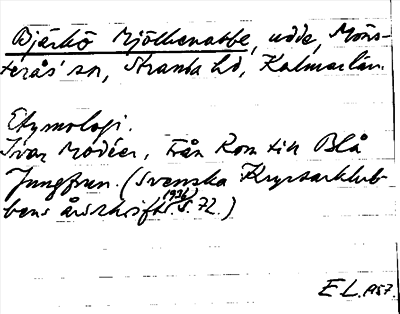 Björkö Mjölkenabbe, udde, Möns-
terås sn, Stranda hd, Kalmar län.
Etymologi.
Ivar Modéer, Från Rom till Blå
Jungfrun. (Svenska Kryssarklub-
bens årsskrift 1936 S. 72.)
E L. 1957.